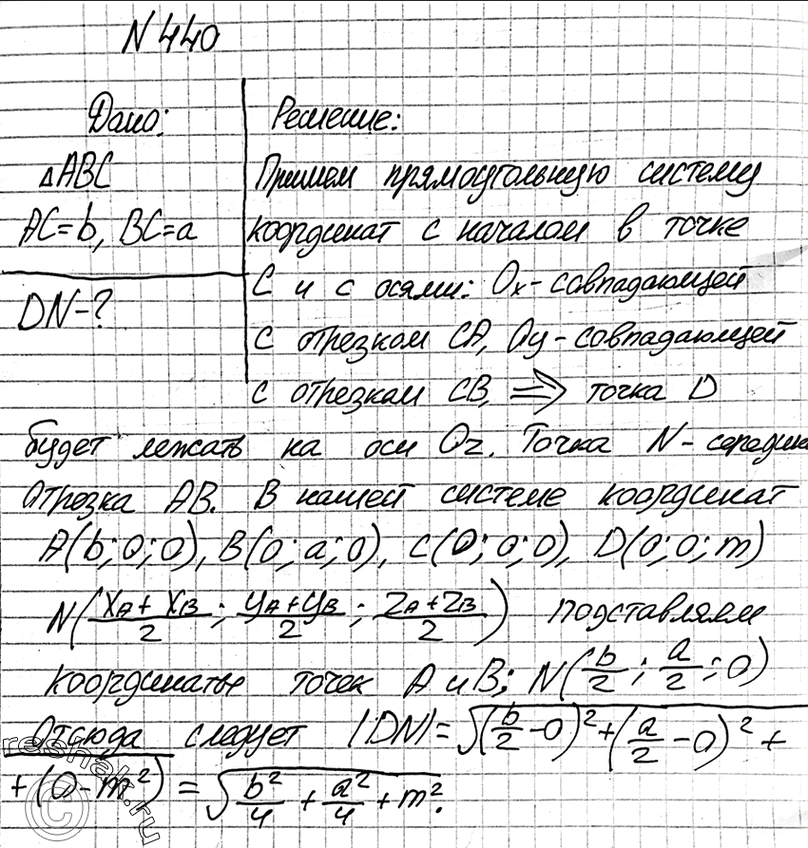 N 440
Дано:
△ABC
AC=b, BC=a
DN-?
Решение:
Примем прямоугольную систему
координат с началом в точке
C и с осями: Ox-совпадающей
с отрезком CA, Oy-совпадающей
с отрезком CB, ⇒ точка D
будет лежать на оси Oz. Точка N-середина
отрезка AB. В нашей системе координат
A(b;0;0), B(0;a;0), C(0;0;0), D(0;0;m)
N((xA+xB)/2; (yA+yB)/2; (zA+zB)/2) подставляем
координаты точек A и B; N(b/2; a/2; 0)
Отсюда следует |DN|=√(b/2-0)²+(a/2-0)²+
+(0-m²) = √b²/4+a²/4+m².
reshak.ru